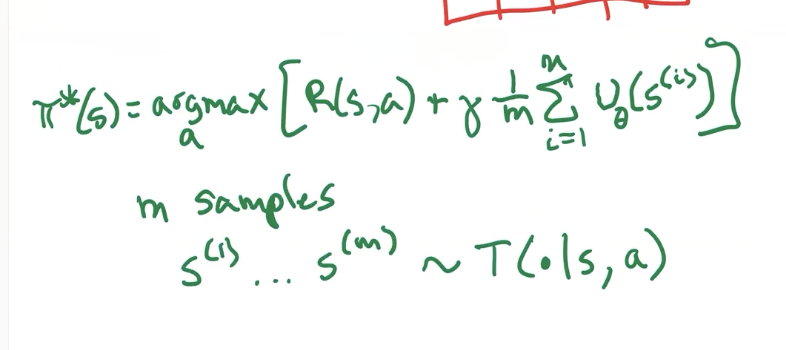 π*(s) = argmax_a [R(s,a) + γ 1/m Σ_{i=1}^{m} U_θ(s^{(i)})]
m samples
s^{(1)} ... s^{(m)} ~ T(·|s, a)